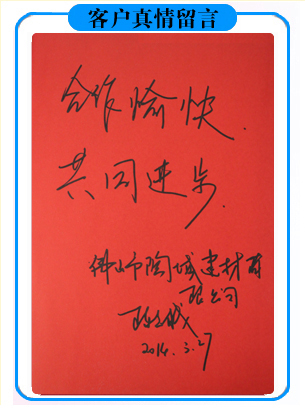 客户真情留言
合作愉快.
共同进步.
佛山市陶城建材有
限公司
2014.3.27